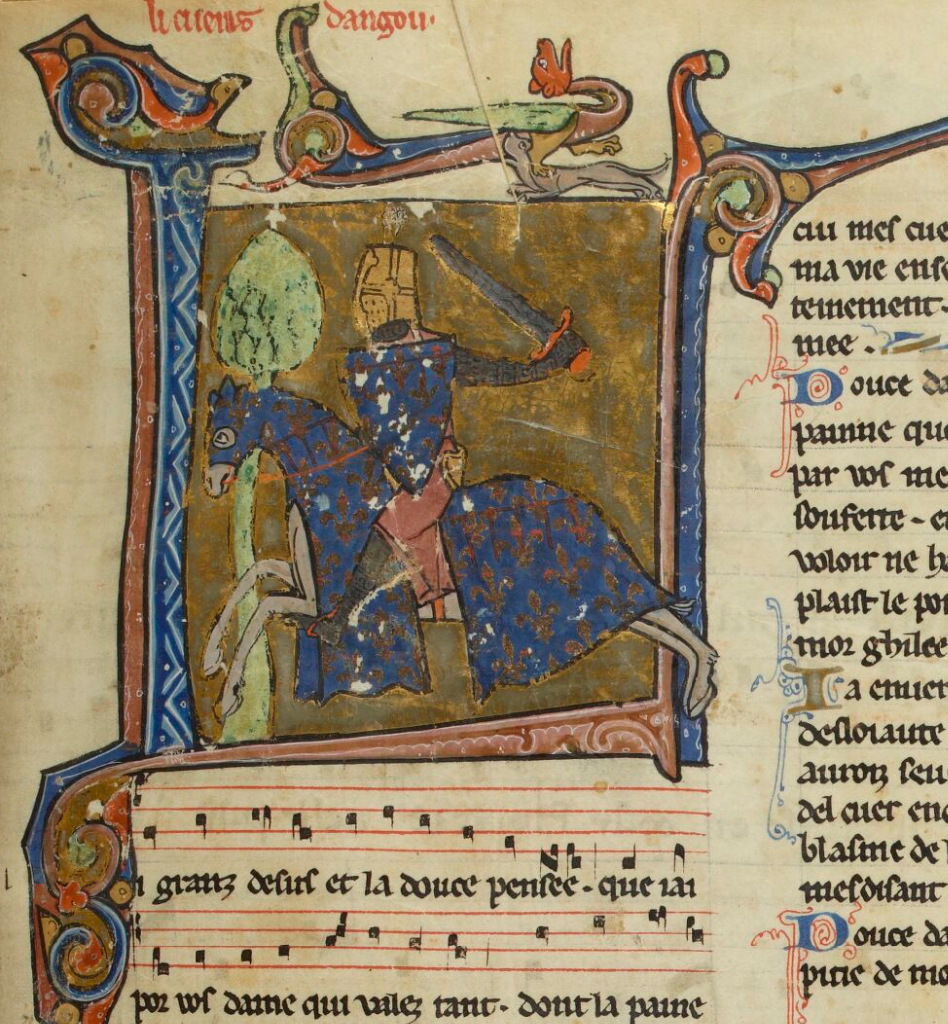 li cuens dangou·
i granz desirs et la douce pensee - que iai
por vos dame qui valez tant - dont la paine
cui mes cue
ma vie ens
tenement -
mee .
Douce da
painne que
par vos me
soufette - e
voloir ne h
plaist le po
mor ghilee
La enuer
desloiaute
auroiz seu
del cuer en
blasme de
mesdisant
Douce da
pitie de mo